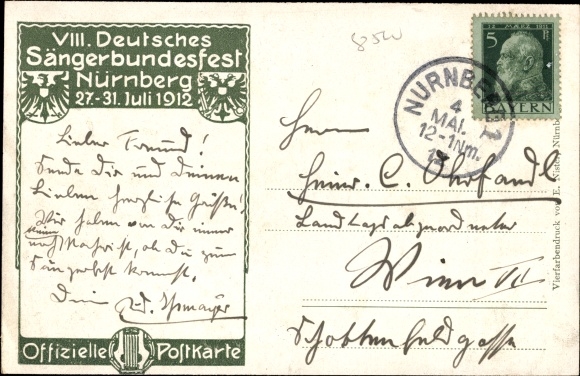 VIII. Deutsches
Sängerbundesfest
Nürnberg
27.-31. Juli 1912
Lieber Freund!
Sende Dir und Deinen
Lieben herzliche Grüße!
Wir haben von Dir immer
noch keine Nachricht, ob du zum
Sängerfest kommst.
Dein
Offizielle Postkarte
850
12 MÄRZ 1911
5 Pf
BAYERN
NÜRNBERG 2
4
MAI.
12-1 Nm.
12
Herrn
Heinr. C.
Landtagsabgeordneter
Wien VII
Schottenfeldgasse
Vierfarbendruck von E. Nister, Nürnberg